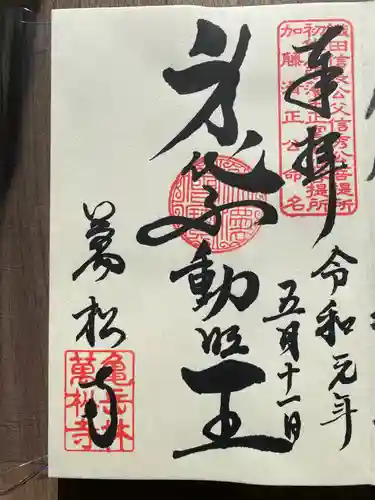 織田信長公父信秀公菩提所
加藤清正公命名
奉拝
令和元年
五月十一日
身代不動明王
萬松寺
亀岳林
萬松寺